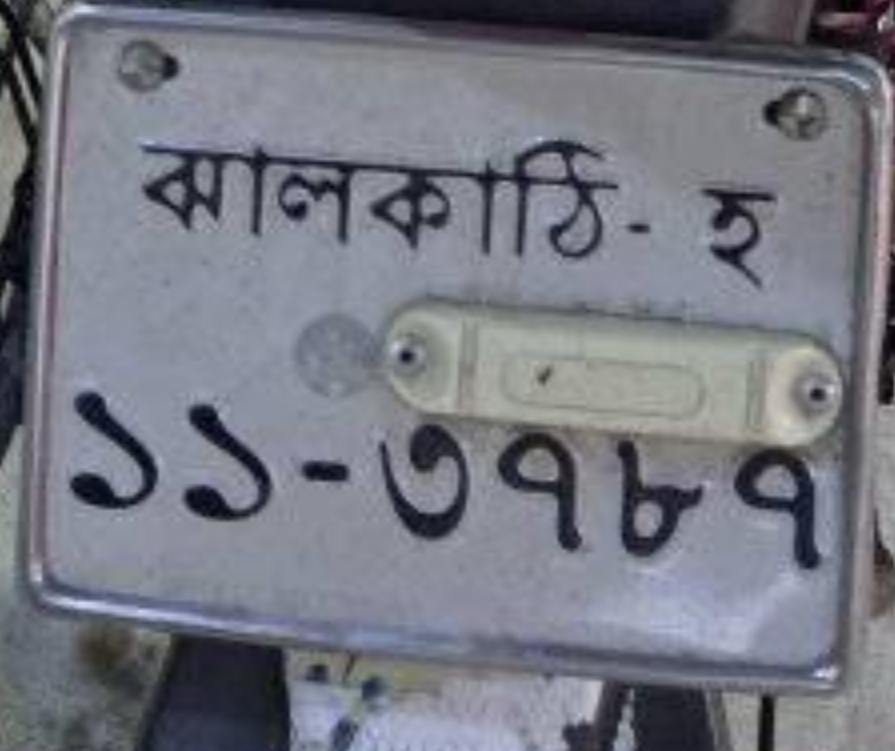 ঝালকাঠি- হ
১১-৩৭৮৭